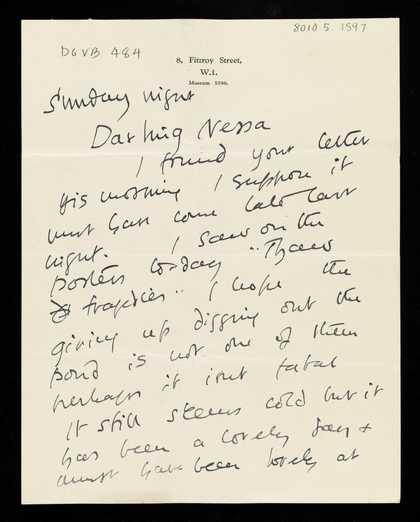 8010 5. 1597
DGVB 484
8, Fitzroy Street,
W.1.
Museum
Sunday night
Darling Nessa
I found your letter
this morning I suppose it
must have come late last
night. I saw on the
posters to-day "Thaw
tragedies" I hope the
giving up digging out the
pond is not one of them
perhaps it isnt fatal
It still seems cold but it
has been a lovely day +
must have been lovely at